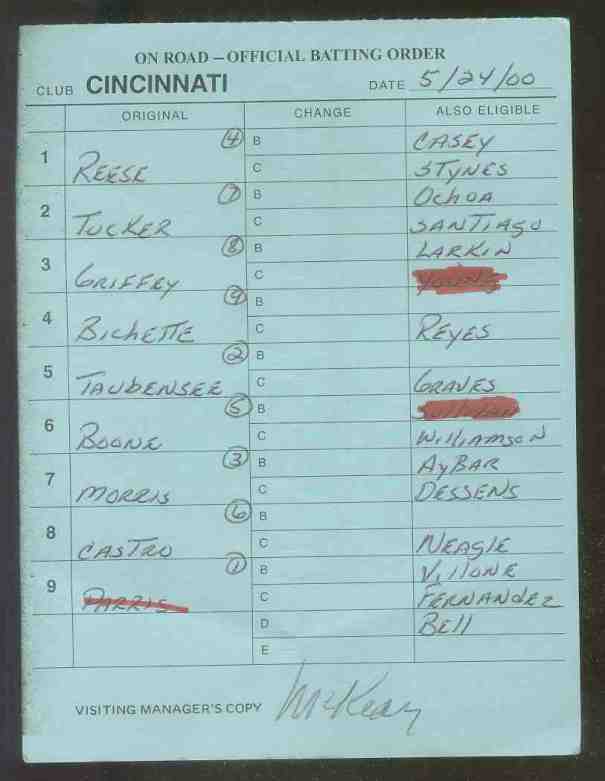 ON ROAD – OFFICIAL BATTING ORDER
CLUB CINCINNATI DATE 5/24/00
ORIGINAL CHANGE ALSO ELIGIBLE
1 REESE 4 B CASEY
C STYNES
2 TUCKER 7 B OCHOA
C SANTIAGO
3 GRIFFEY 8 B LARKIN
C YOUNG
4 BICHETTE 9 B
C REYES
5 TAUBENSEE 2 B
C GRAVES
6 BOONE 5 B SULLIVAN
C WILLIAMSON
7 MORRIS 3 B AYBAR
C DESSENS
8 CASTRO 6 B
C NEAGLE
9 PARRIS 1 B VILLONE
C FERNANDEZ
D BELL
E
VISITING MANAGER'S COPY McKeon